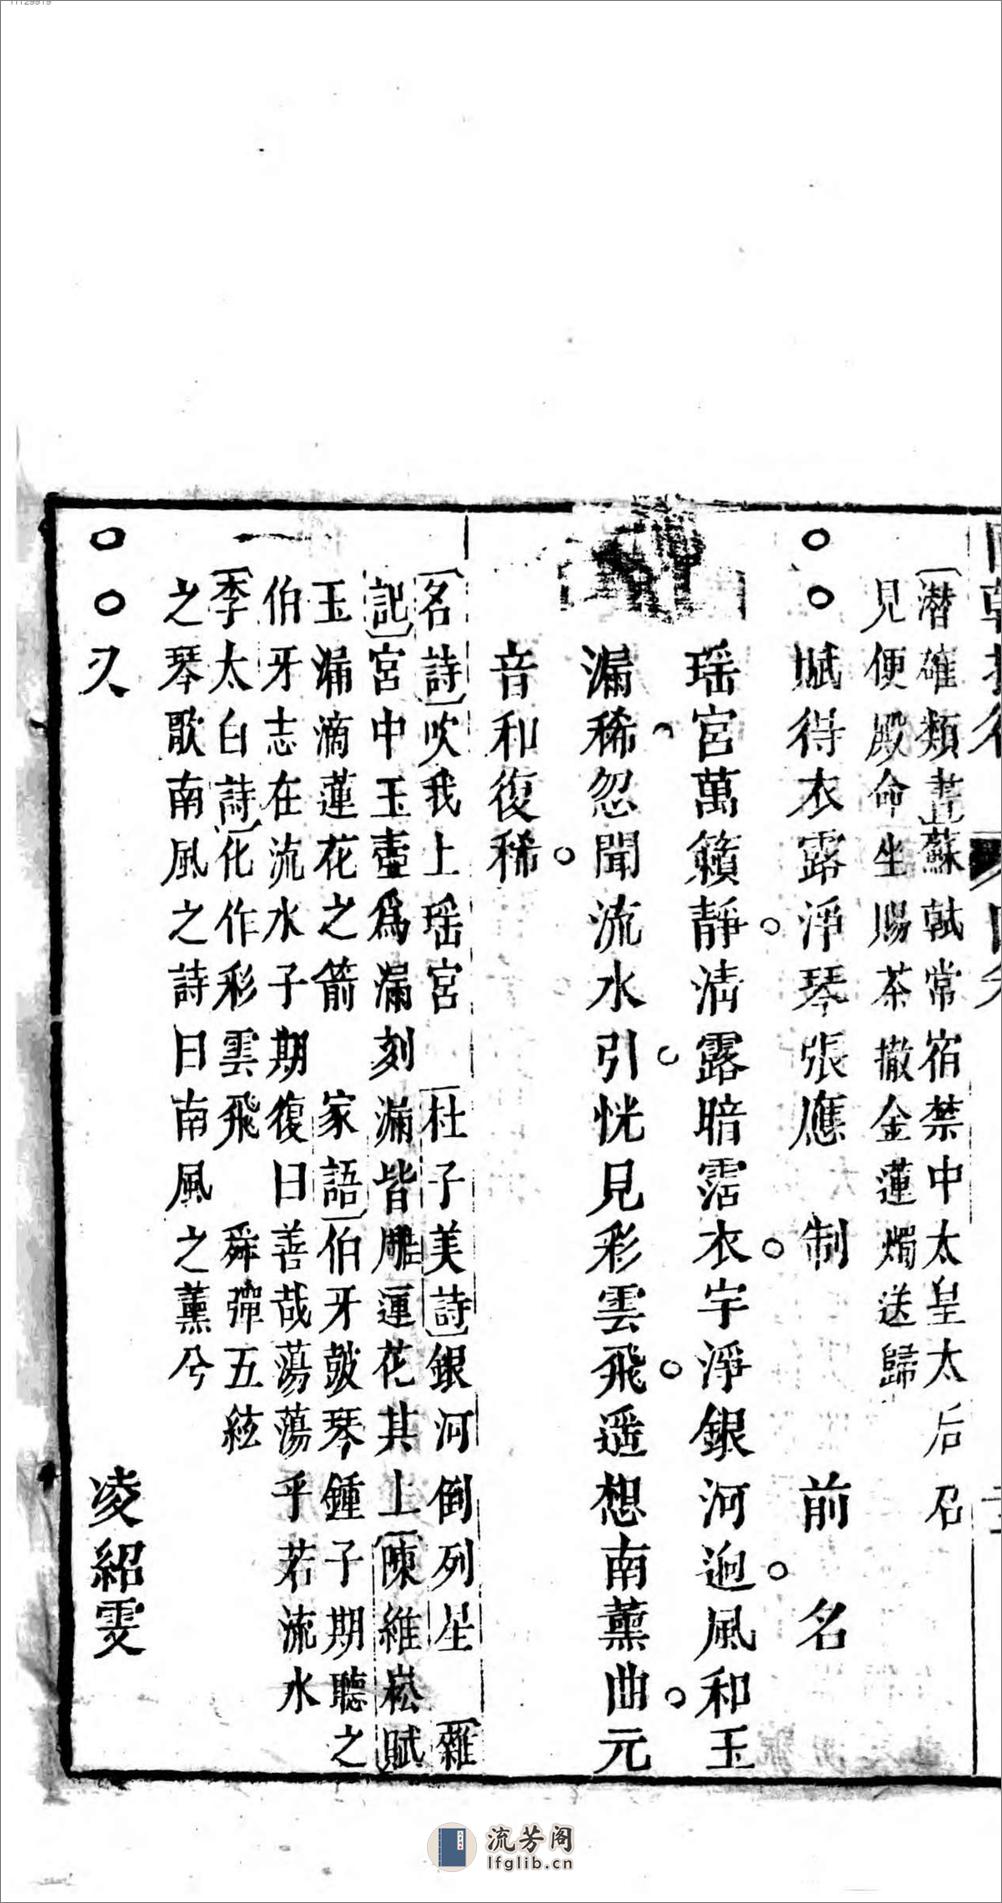 潛確類書蘇軾常宿禁中太皇太后召
見便殿命坐賜茶撤金蓮燭送歸
○○賦得衣露淨琴張應制 前名
瑶宮萬籟靜清露暗霑衣宇淨銀河迥風和玉
漏稀忽聞流水引恍見彩雲飛遥想南薰曲元
音和復稀
名詩吹我上瑶宮 杜子美詩銀河倒列星 雜
記宮中玉壺爲漏刻漏皆雕蓮花其上陳維崧賦
玉漏滴蓮花之箭 家語伯牙鼓琴鍾子期聽之
伯牙志在流水子期復曰善哉蕩蕩乎若流水
李太白詩化作彩雲飛 舜彈五絃
之琴歌南風之詩曰南風之薰兮
○○又 凌紹雯
流芳阁
lfglib.cn
11129919